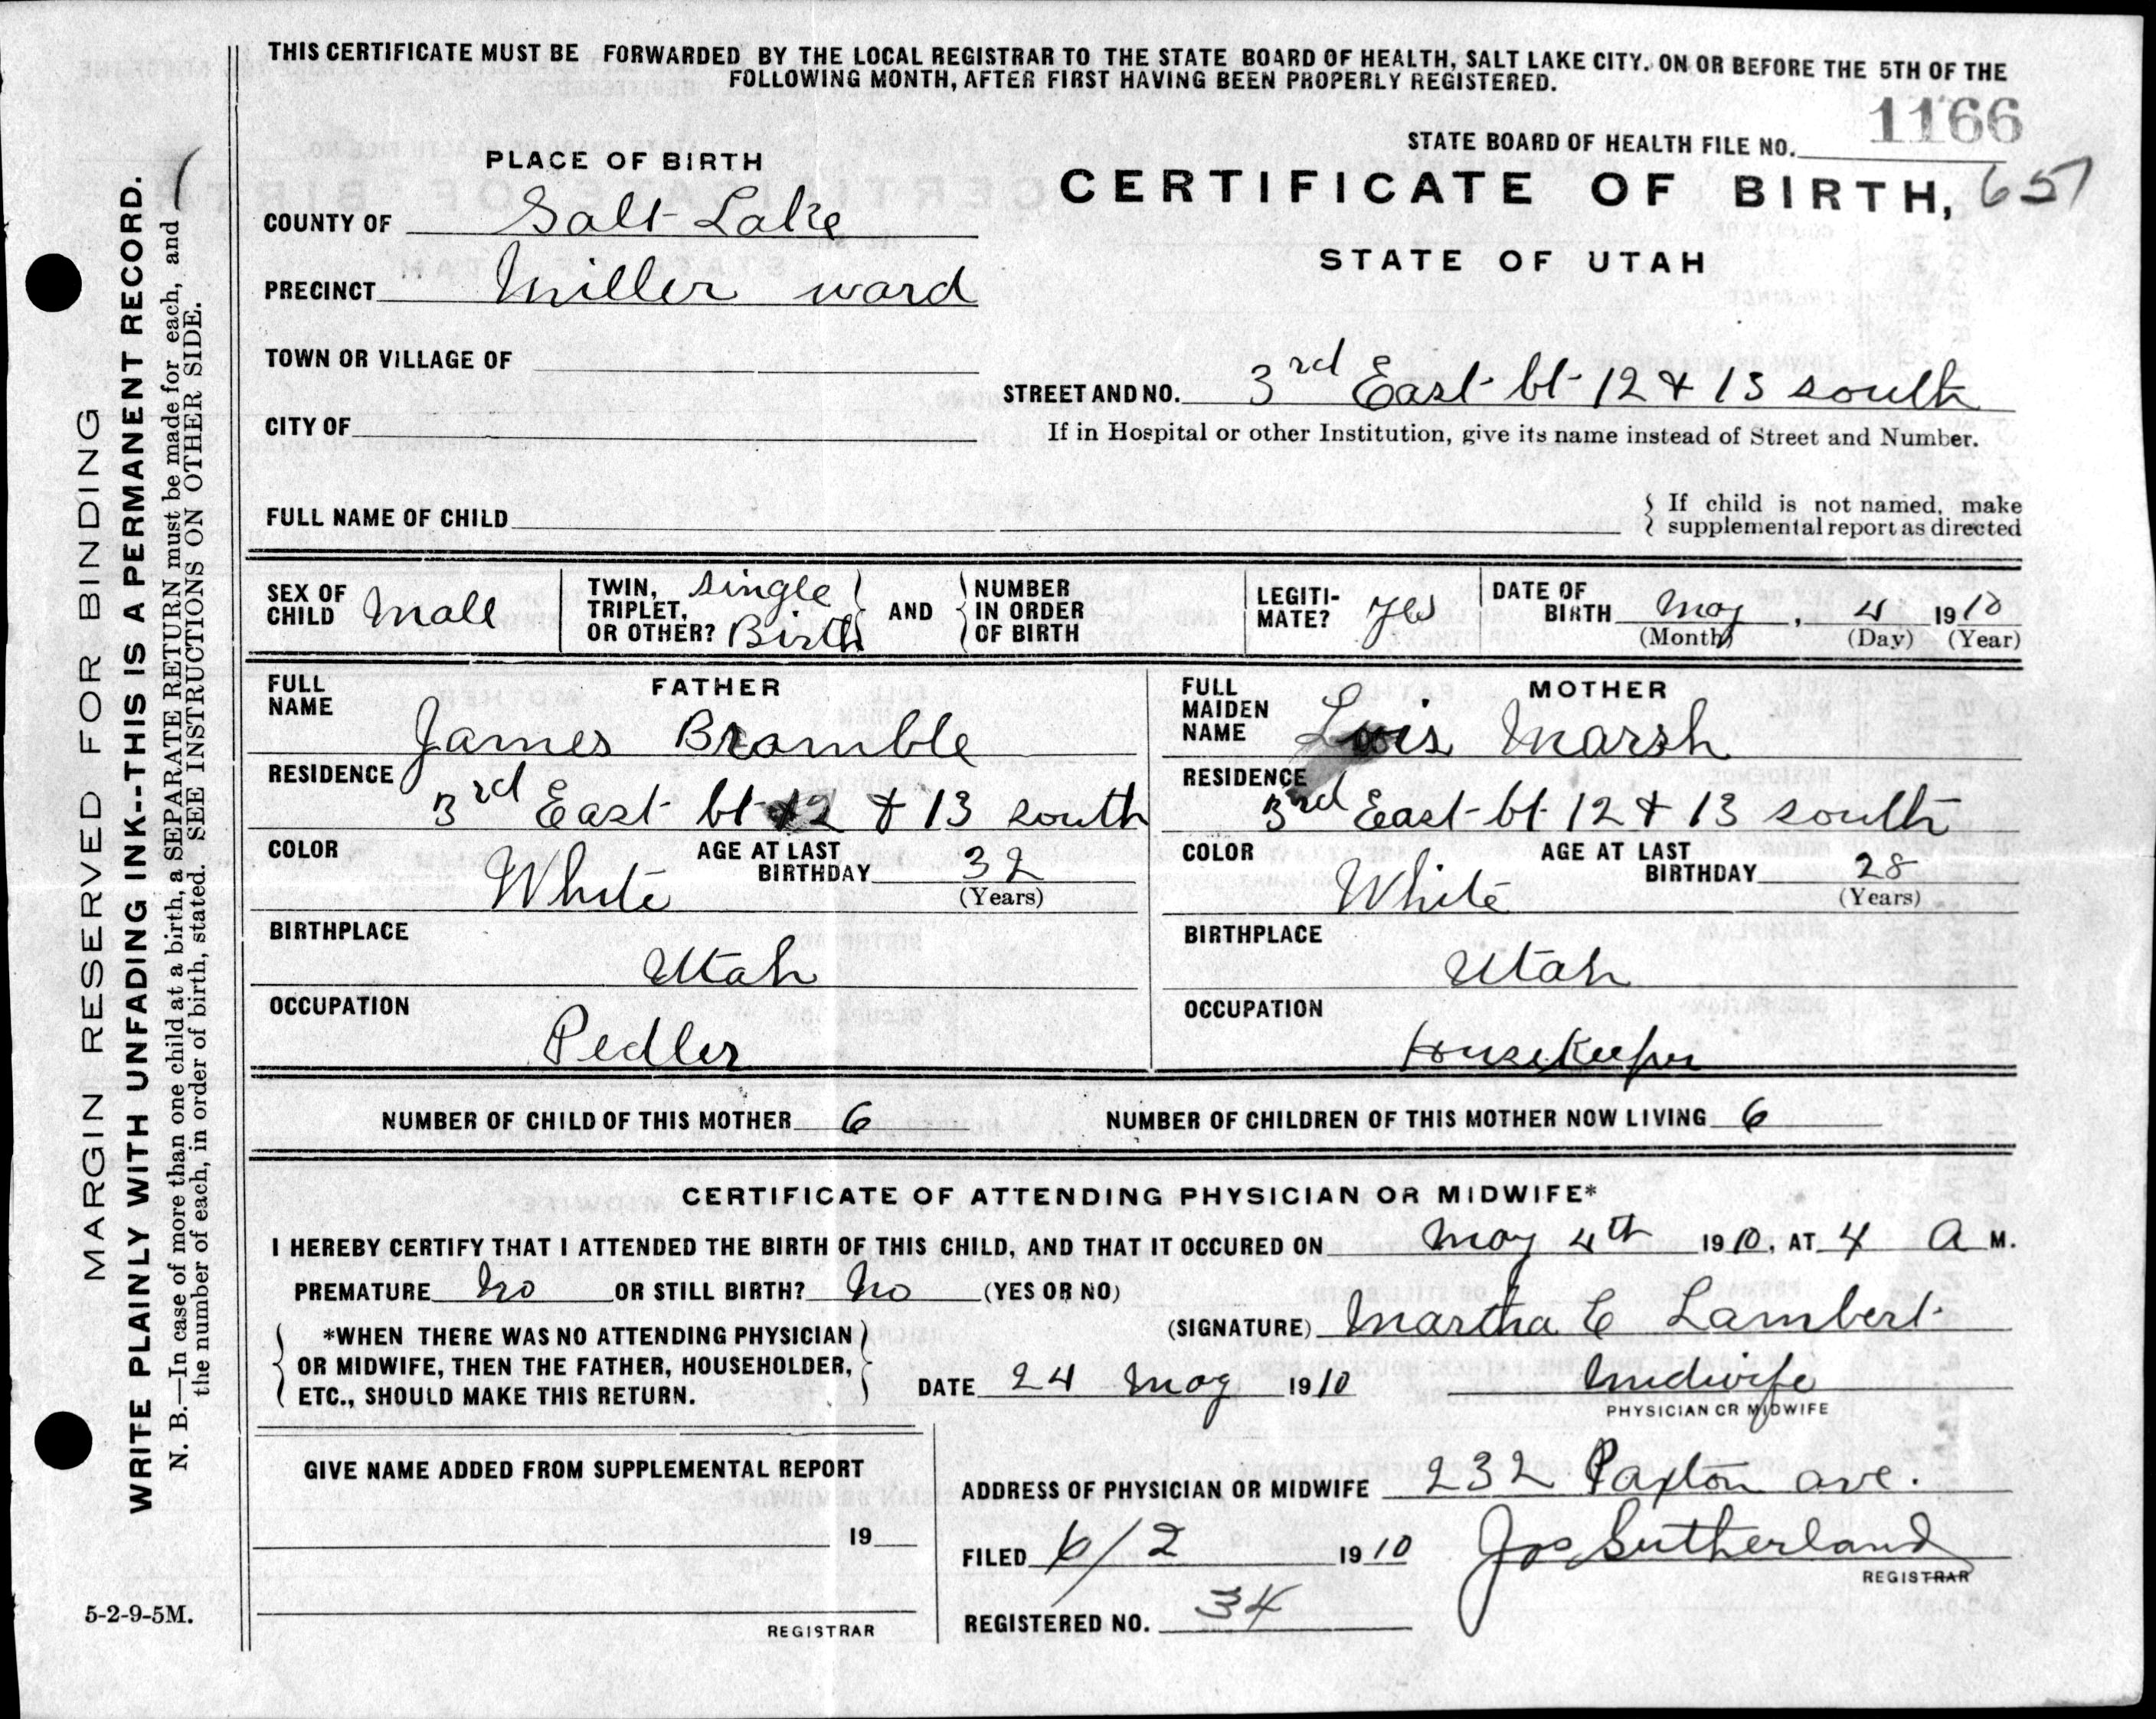 THIS CERTIFICATE MUST BE FORWARDED BY THE LOCAL REGISTRAR TO THE STATE BOARD OF HEALTH, SALT LAKE CITY. ON OR BEFORE THE 5TH OF THE
FOLLOWING MONTH, AFTER FIRST HAVING BEEN PROPERLY REGISTERED.
STATE BOARD OF HEALTH FILE NO. 1166
PLACE OF BIRTH
CERTIFICATE OF BIRTH, 657
STATE OF UTAH
COUNTY OF Salt Lake
PRECINCT Miller ward
TOWN OR VILLAGE OF
STREET AND NO. 3rd East bt 12 & 13 south
CITY OF
If in Hospital or other Institution, give its name instead of Street and Number.
FULL NAME OF CHILD
If child is not named, make
supplemental report as directed
SEX OF CHILD Male
TWIN, TRIPLET, OR OTHER? Single Birth
AND
NUMBER IN ORDER OF BIRTH
LEGITI-MATE? Yes
DATE OF BIRTH May, 4 1910
(Month) (Day) (Year)
FATHER
FULL NAME James Bramble
RESIDENCE 3rd East bt 12 & 13 south
COLOR White
AGE AT LAST BIRTHDAY 32
(Years)
BIRTHPLACE Utah
OCCUPATION Pedler
MOTHER
FULL MAIDEN NAME Lois Marsh
RESIDENCE 3rd East bt 12 & 13 south
COLOR White
AGE AT LAST BIRTHDAY 28
(Years)
BIRTHPLACE Utah
OCCUPATION Housekeeper
NUMBER OF CHILD OF THIS MOTHER 6 NUMBER OF CHILDREN OF THIS MOTHER NOW LIVING 6
CERTIFICATE OF ATTENDING PHYSICIAN OR MIDWIFE*
I HEREBY CERTIFY THAT I ATTENDED THE BIRTH OF THIS CHILD, AND THAT IT OCCURED ON May 4th 1910, AT 4 A M.
PREMATURE No OR STILL BIRTH? No (YES OR NO)
(SIGNATURE) Martha C Lambert
*WHEN THERE WAS NO ATTENDING PHYSICIAN
OR MIDWIFE, THEN THE FATHER, HOUSEHOLDER,
ETC., SHOULD MAKE THIS RETURN.
DATE 24 May 1910 Midwife
PHYSICIAN OR MIDWIFE
GIVE NAME ADDED FROM SUPPLEMENTAL REPORT
19
REGISTRAR
ADDRESS OF PHYSICIAN OR MIDWIFE 232 Paxton ave.
FILED 6/2 1910 Jos Sutherland
REGISTRAR
REGISTERED NO. 34
MARGIN RESERVED FOR BINDING
WRITE PLAINLY WITH UNFADING INK--THIS IS A PERMANENT RECORD.
N. B.—In case of more than one child at a birth, a SEPARATE RETURN must be made for each, and
the number of each, in order of birth, stated. SEE INSTRUCTIONS ON OTHER SIDE.
5-2-9-5M.